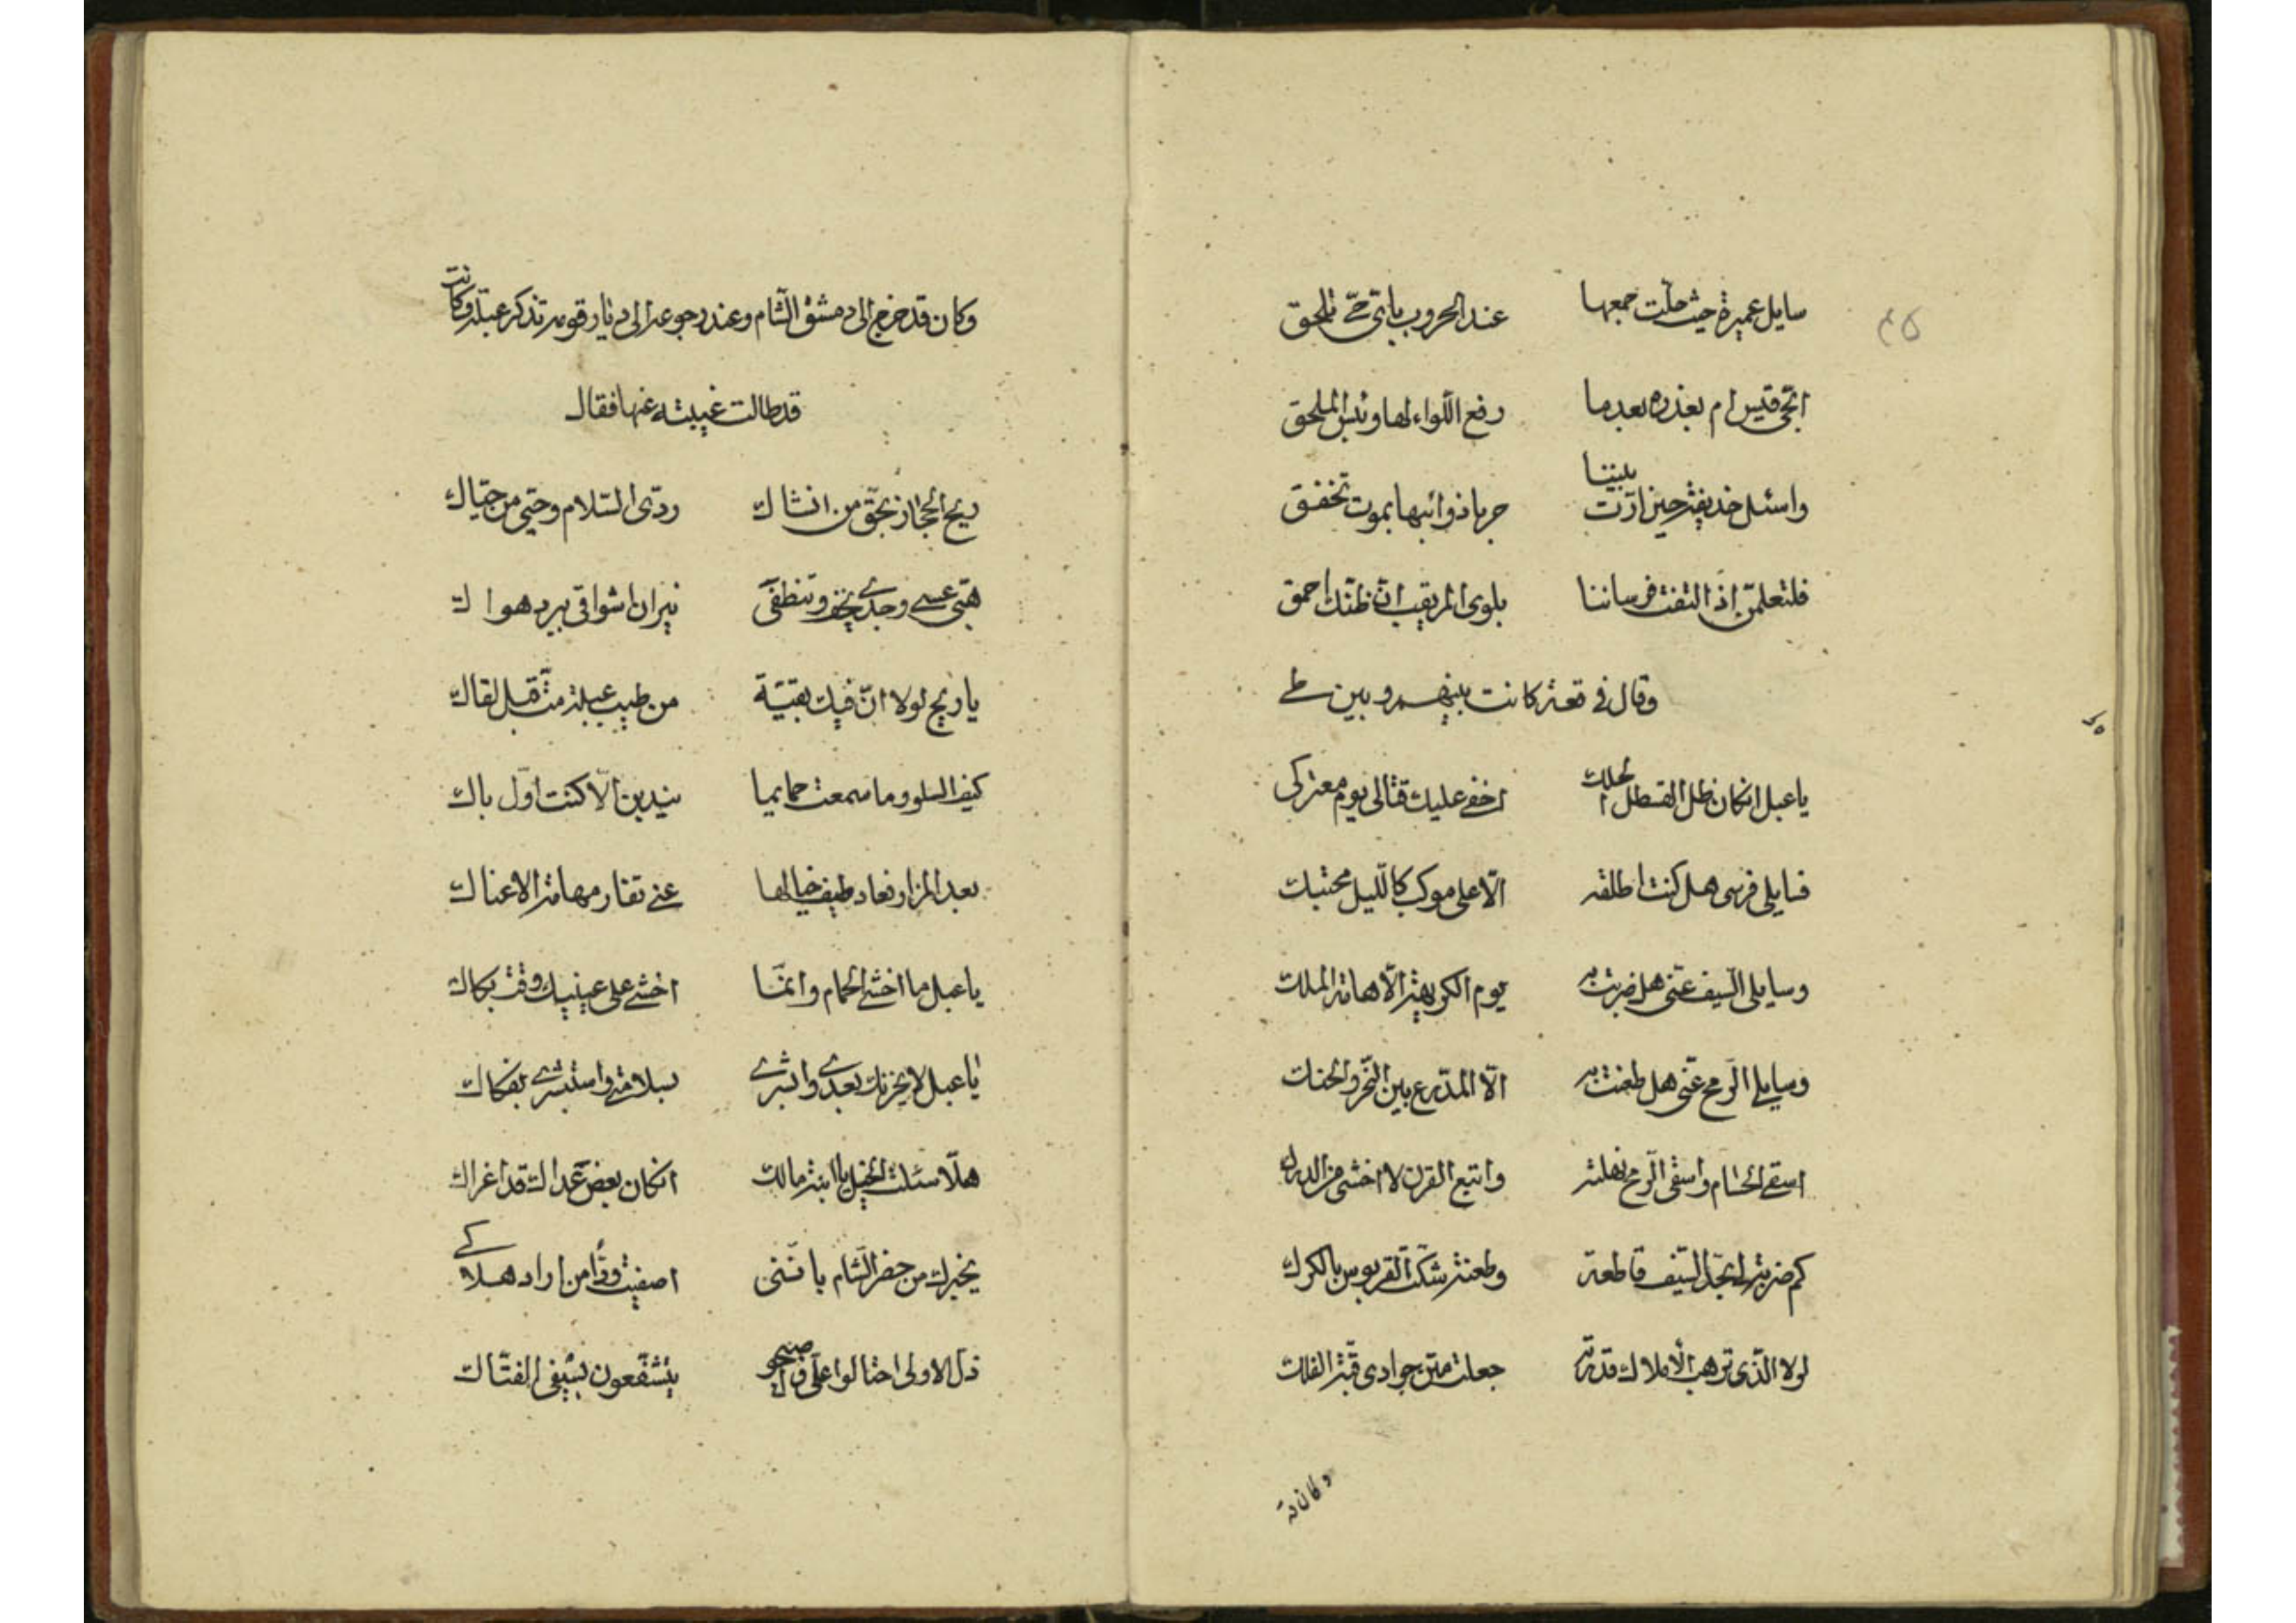 سايل عميرة حيث حلّت جمعها عند الحروب باىّ حىّ تلحق
ابحىّ قيس ام بعذره بعد ما رفع اللّواء لها وبئس الملحق
واسئل حذيفة حين ارّت بيننا حربا ذوائبها بموت تخفق
فلتعلمنّ اذا التقت فرساننا بلوى المريقب انّ ظنّك احمق
وقال في وقعة كانت بينهم وبين طى
يا عبل ان كان ظل القسطل الحلك اخفى عليك قتالى يوم معتركى
فسايلى فرسى هل كنت اطلقه الّا على موكب كاللّيل محتبك
وسايلى السّيف عنّى هل ضربت به يوم الكريهة الّا هامة الملك
وسايلى الرّمح عنّى هل طعنت به الّا المدّرع بين النّحر والحنك
اسقى الحسام واسقى الرّمح نهلته واتبع القرن لا اخشى من الدرك
كم ضربة لى بحدّ السّيف قاطعة وطعنة شكّت القربوس بالكرك
لولا الّذى ترهب الأملاك قدرته جعلت متن جوادى قبّة الفلك
وكان قد
وكان قد خرج الى دمشق الشام وعند رجوعه الى ديار قومه تذكر عبلة وكانت
قد طالت غيبته عنها فقال
ريح الحجاز بحقّ من انشاك ردّى السّلام وحيّى من حيّاك
هبّى عسى وجدى يخف وتنطفى نيران اشواقى ببرد هواك
يا ريح لولا انّ فيك بقيّة من طيب عبلة متّ قبل لقاك
كيف السلو وما سمعت حمايما يندبن الّا كنت اوّل باك
بعد المزار فعاد طيف خيالها عنى تفار مهامه الاعناك
يا عبل ما اخشى الحمام وانّما اخشى على عينيك وقت بكاك
يا عبل لا يحزنك بعدى وابشرى بسلامتى واستبشرى بفكاك
هلّا سئلت الخيل يا ابنة مالك ان كان بعض عداك قد اغراك
يخبرك من حضر الشام باننى اصفيت ودّا من اراد هلاكى
ذل الاولى احتالوا علىّ واصبحوا يتشفّعون بسيفى الفتّاك